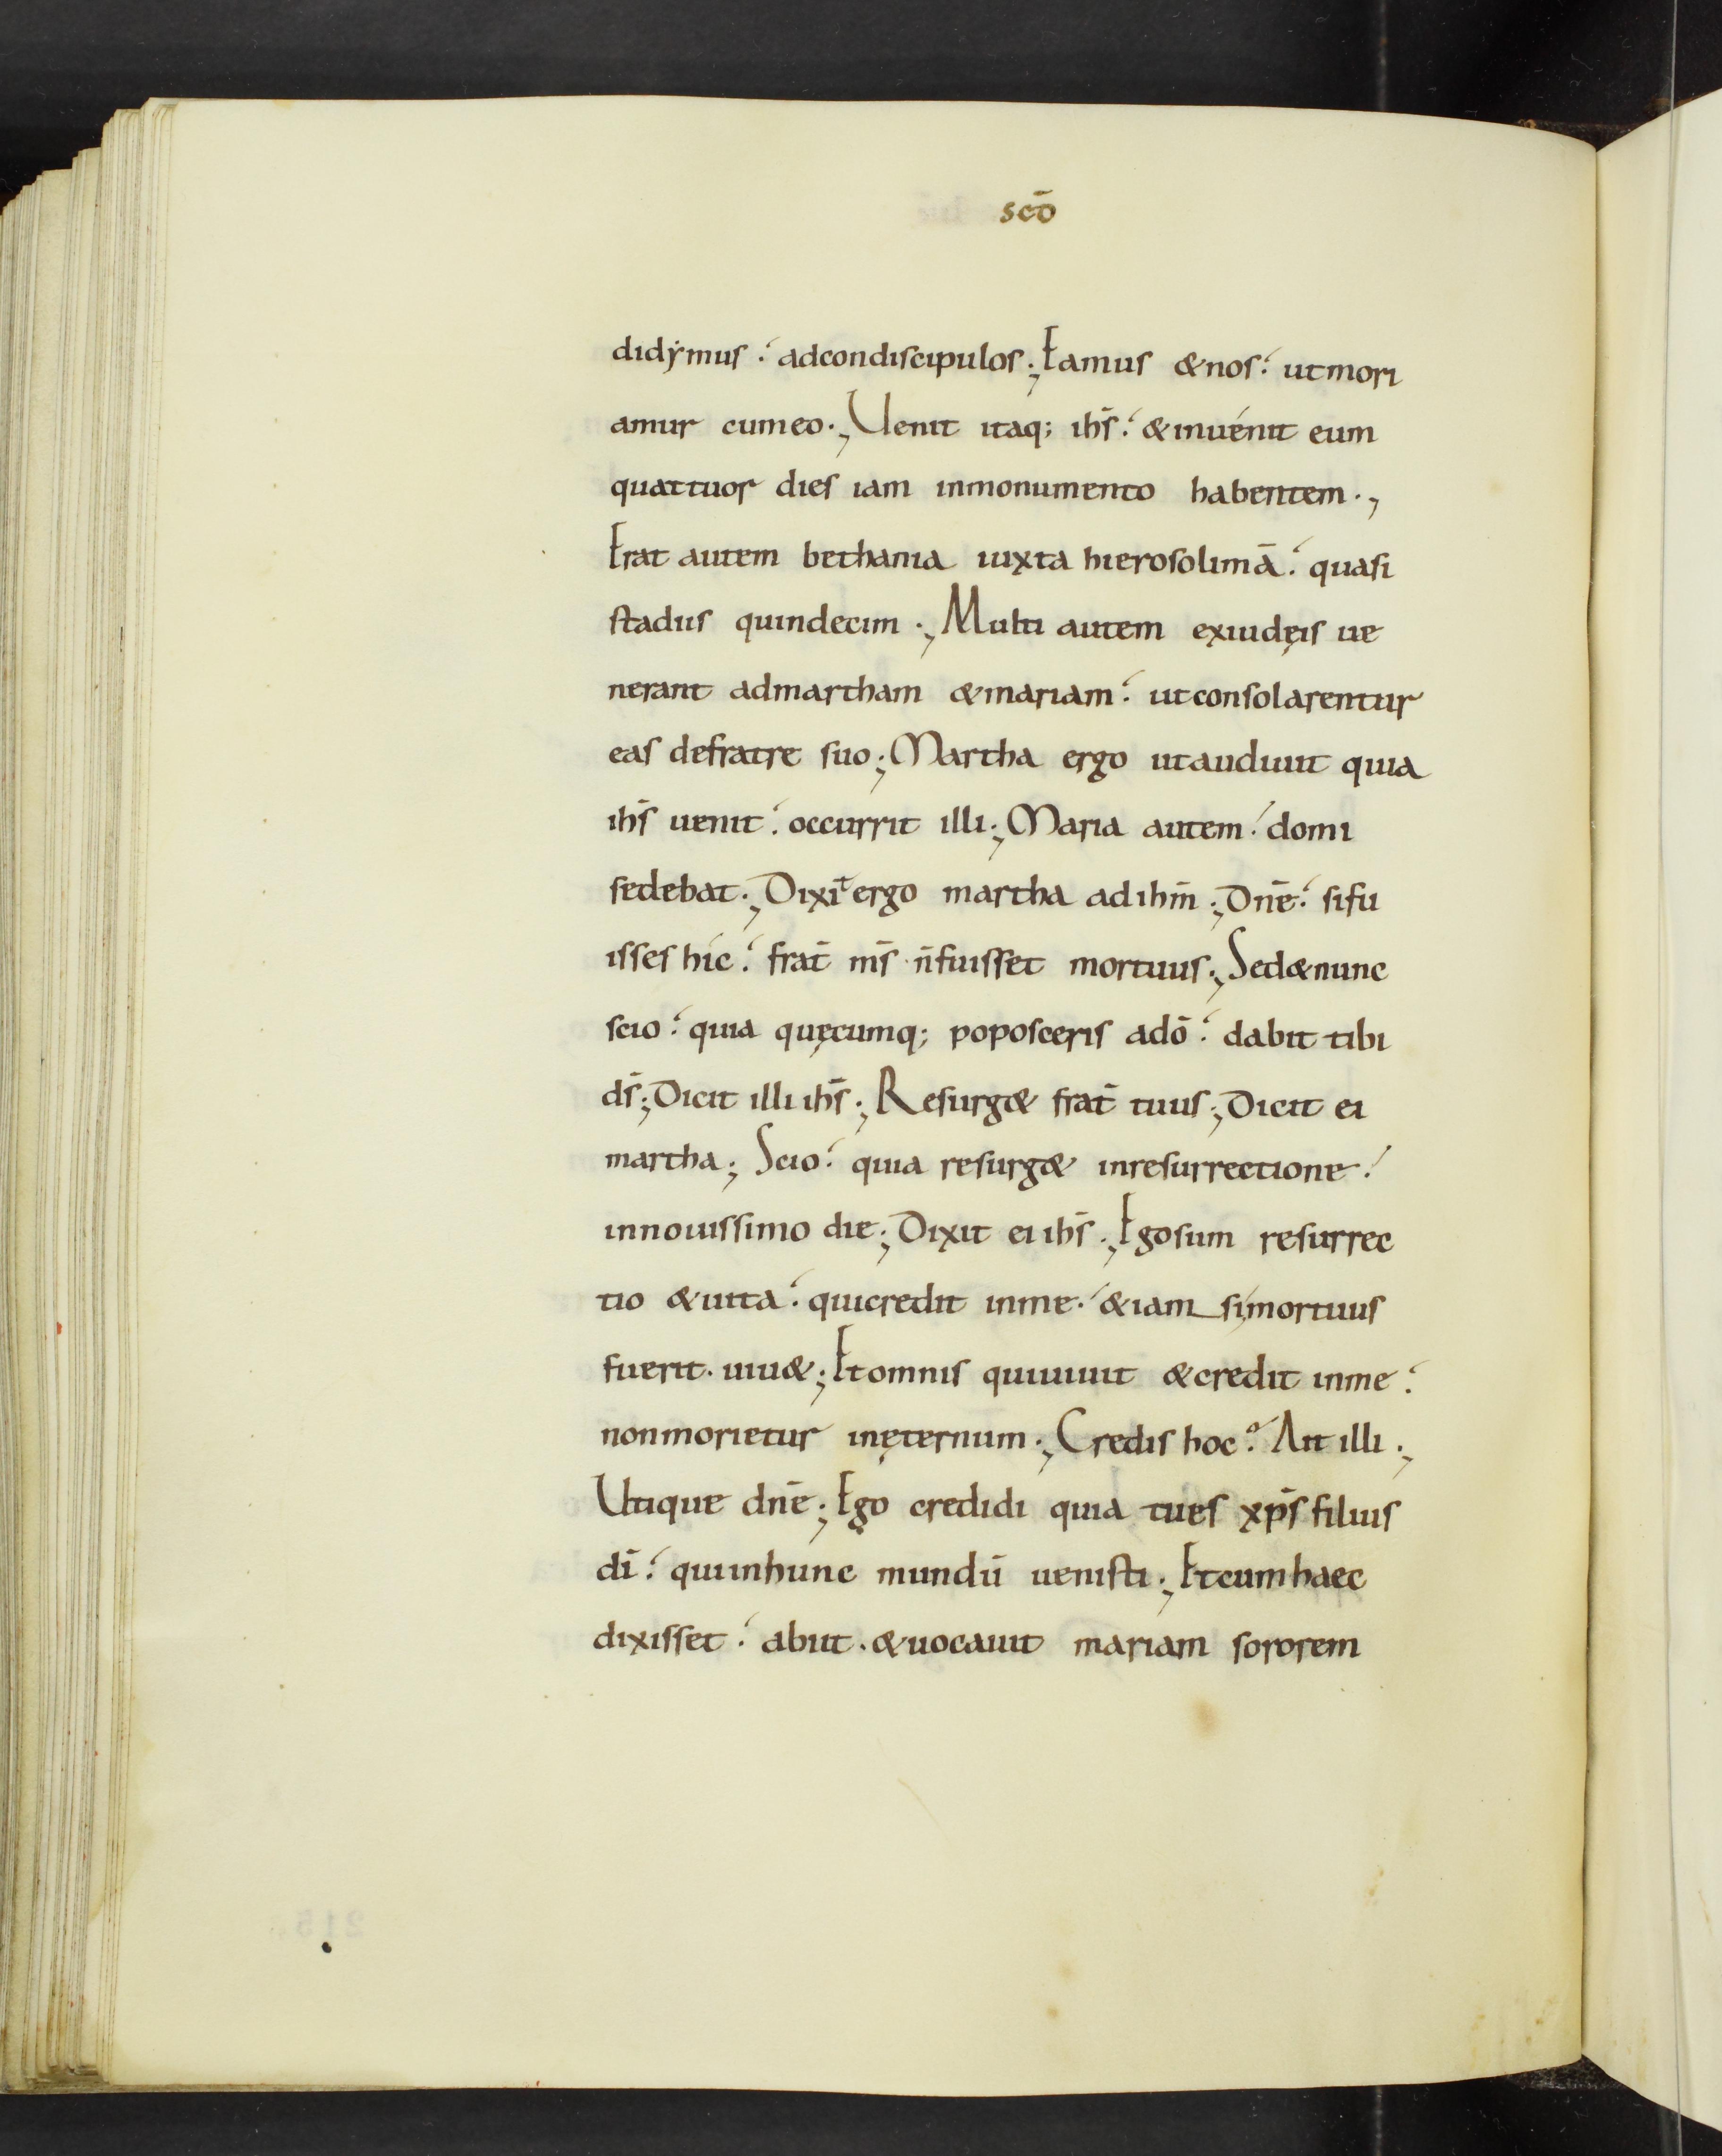 scō
didẏmus · adcondiscipulos ; Eamus &nos · utmori
amur cumeo ; Uenit itaq; ihs̄ · &inuénit eum
quattuor dies iam inmonumento habentem ;
Erat autem bethania iuxta hierosolimā · quasi
stadiis quindecim ; Multi autem exiudęis ue
nerant admartham &mariam · utconsolarentur
eas defratre suo ; Martha ergo utaudiuit quia
ihs̄ uenit · occurrit illi ; Maria autem · domi
sedebat ; Dixit ergo martha adihm̄ ; Dn̄e · sifu
isses híc · frat̄ ms̄ n̄fuisset mortuus ; Sed&nunc
scio · quia quęcumq; poposceris adō · dabit tibi
ds̄ ; Dicit illi ihs̄ ; Resurg& frat̄ tuus ; Dicit ei
martha ; Scio · quia resurg& inresurrectione ·
innouissimo die ; Dixit ei ihs̄ ; Egosum resurrec
tio &uita · quicredit inme · &iam simortuus
fuerit · uiu& ; Etomnis quiuiuit &credit inme ·
nonmorietur inęternum ; Credis hoc? Ait illi ;
Utique dn̄e ; Ego credidi quia tues xps̄ filius
dī · quiinhunc mundū uenisti ; Etcumhaec
dixisset · abiit · &uocauit mariam sororem